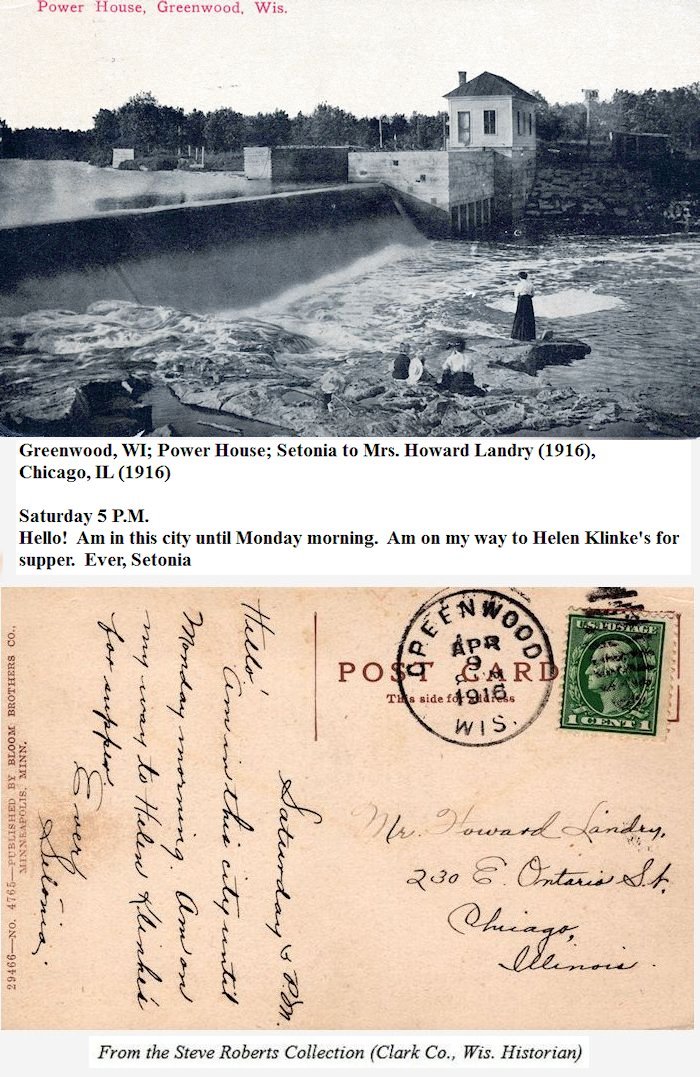 Power House, Greenwood, Wis.
Greenwood, WI; Power House; Setonia to Mrs. Howard Landry (1916),
Chicago, IL (1916)
Saturday 5 P.M.
Hello!  Am in this city until Monday morning.  Am on my way to Helen Klinke's for
supper.  Ever, Setonia
Saturday 5 P.M.
Hello!
Am in this city until
Monday morning. Am on
my way to Helen Klinke's
for supper
Ever,
Setonia.
29466—NO. 4765—PUBLISHED BY BLOOM BROTHERS CO.,
MINNEAPOLIS, MINN.
POST CARD
This side for address
GREENWOOD
APR
9
1916
WIS.
U.S. POSTAGE
1 CENT 1
Mr. Howard Landry,
230 E. Ontario St.
Chicago,
Illinois.
From the Steve Roberts Collection (Clark Co., Wis. Historian)